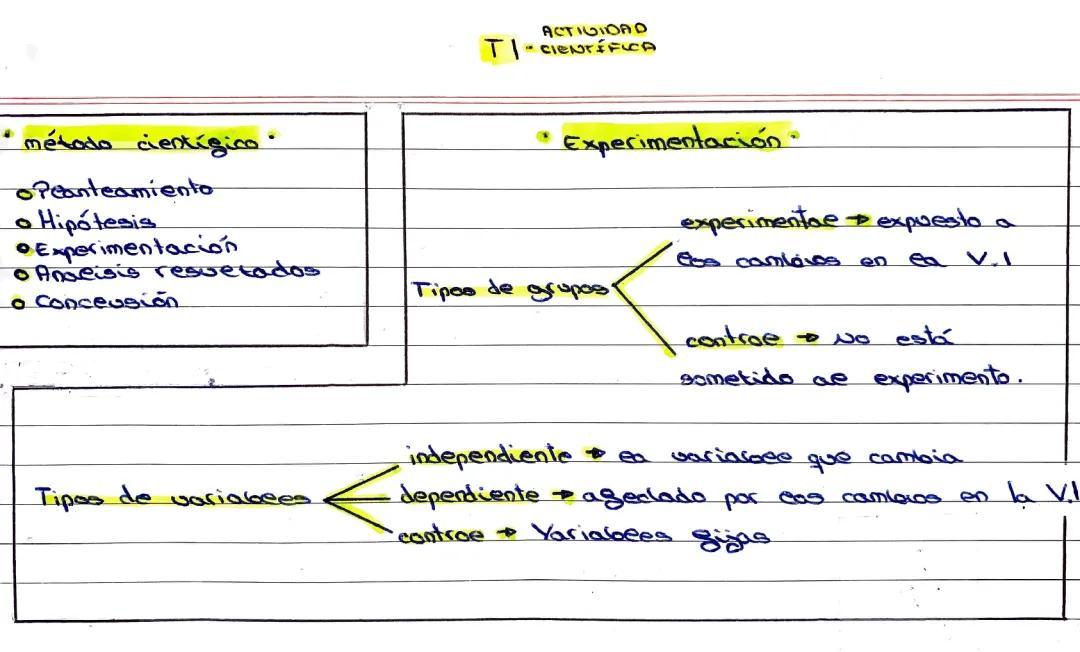 ACTIVIDAD
T1 - CIENTÍFICA
• método científico •
Planteamiento
Hipótesis
Experimentación
Analisis resultados
Conclusión
• Experimentación •
Tipos de grupos
experimental → expuesto a
los cambios en la V.I
control → No está
sometido al experimento.
Tipos de variables
independiente → la variable que cambia
dependiente → afectado por los cambios en la V.I
control → Variables fijas